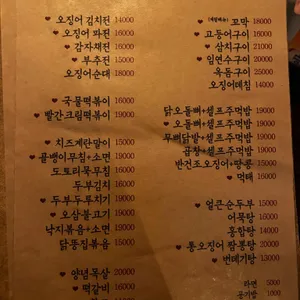 ♥ 오징어 김치전 14000
♥ 오징어 파전 16000
♥ 감자채전 16000
♥ 부추전 15000
오징어순대 18000
♥ 국물떡볶이 16000
♥ 빨간크림떡볶이 19000
♥ 치즈계란말이 15000
♥ 골뱅이무침+소면 19000
도토리묵무침 16000
두부김치 16000
♥ 두부두루치기 19000
♥ 오삼불고기 19000
낙지볶음+소면 19000
닭똥집볶음 15000
♥ 양념목살 20000
♥ 떡갈비 16000
꼬막 18000
♥ 고등어구이 16000
♥ 삼치구이 21000
♥ 임연수구이 20000
♥ 옥돔구이 25000
오징어데침 14000
닭오돌뼈+셀프주먹밥 19000
♥ 오돌뼈+셀프주먹밥 19000
무뼈닭발+셀프주먹밥 19000
곱창+셀프주먹밥 19000
반건조오징어+땅콩 15000
♥ 먹태 16000
♥ 얼큰순두부 15000
어묵탕 16000
홍합탕 14000
♥ 통오징어 짬뽕탕 20000
♥ 번데기탕 13000
라면 5000
공기밥 1000